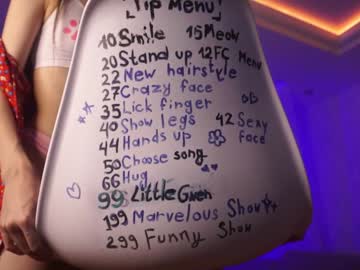 [Tip Menu]
10 Smile 15 Meow
20 Stand up 12 FC Menu
22 New hairstyle
27 Crazy face
35 Lick finger
40 Show legs 42 Sexy face
44 Hands up
50 Choose song
66 Hug
99 Little Gven
199 Marvelous Show
299 Funny Show